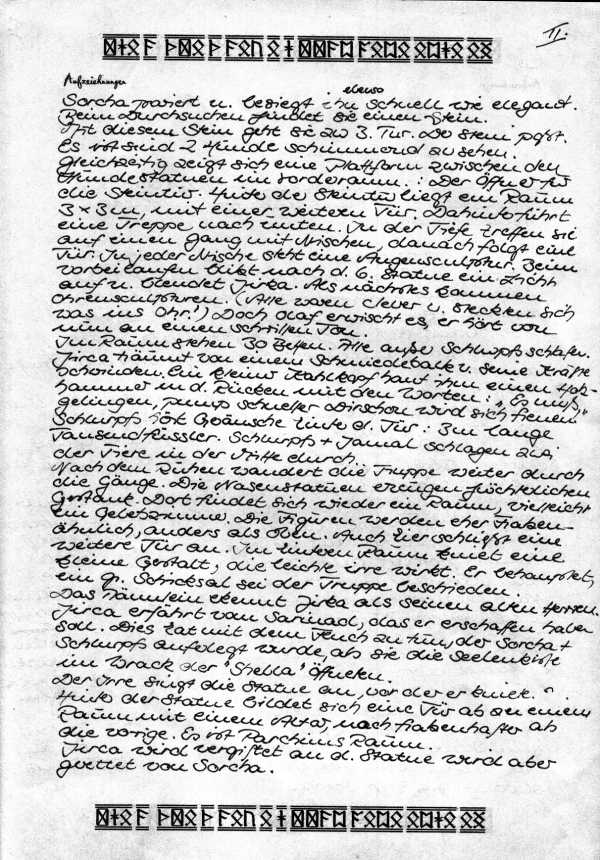 II.
Aufzeichnungen
ebenso
Sorcha pariert u. besiegt ihn schnell wie elegant.
Beim Durchsuchen findet sie einen Stein.
Mit diesem Stein geht sie zu 3. Tür. Der Stein paßt.
Es ist sind 2 Hunde schimmernd zu sehen.
Gleichzeitig zeigt sich eine Plattform zwischen den
Hundestatuen im Vorderraum. : Der Öffner für
die Steintür. Hinter der Steintür liegt ein Raum
3 x 3 m, mit einer weitern Tür. Dahinter führt
eine Treppe nach unten. In der Tiefe treffen sie
auf einen Gang mit Nischen, danach folgt eine
Tür. In jeder Nische steht eine Augenskulptur. Beim
vorbeilaufen blitzt nach d. 6. Statue ein Licht
auf u. blendet Jirka. Als nächstes kommen
Ohrenskulpturen. (Alle waren clever u. steckten sich
was ins Ohr!) Doch Olaf erwischt es, er hört von
nun an einen schrillen Ton.
Im Raum stehen 30 Betten. Alle außer Schlupfs schlafen.
Jirca träumt von einem Schmiedebalk u. seine Kräfte
schwinden. Ein kleiner Kahlkopf haut ihm einen Holz-
hammer in d. Rücken mit den Worten: „Es muß
gelingen, pump schneller Bürschen wird sich freuen"
Schlurpfs hört Geräusche hinter d. Tür: 3m lange
Tausendfüssler. Schlurpfs + Jamal schlagen 2
der Tiere in der Mitte durch.
Nach dem Ruhen wandert die Truppe weiter durch
die Gänge. Die Nasenstatuen erzeugen fürchterlichen
Gestank. Dort findet sich wieder ein Raum, vielleicht
ein Gebetszimmer. Die Figuren werden eher Fratzen-
ähnlich, anders als oben. Auch hier schließt eine
weitere Tür an. Im linken Raum kniet eine
kleine Gestalt, die leicht irre wirkt. Er behauptet,
ein gr. Schicksal sei der Truppe beschieden.
Das Männlein erkennt Jirka als seinen alten Herren.
Jirca erfährt vom Sarinaol, das er erschaffen haben
soll. Dies hat mit dem Fluch zu tun, der Sorcha +
Schlurpfs auferlegt wurde, als sie die Seelenkiste
im Wrack der "Shella" öffneten.
Der Irre singt die Statue an, vor der er kniet.
Hinter der Statue bildet sich eine Tür ab zu einem
Raum mit einem Altar, noch fratzenhafter als
die vorige. Es ist Parchims Raum.
Jirca wird vergiftet an d. Statue wird aber
gerettet von Sorcha.